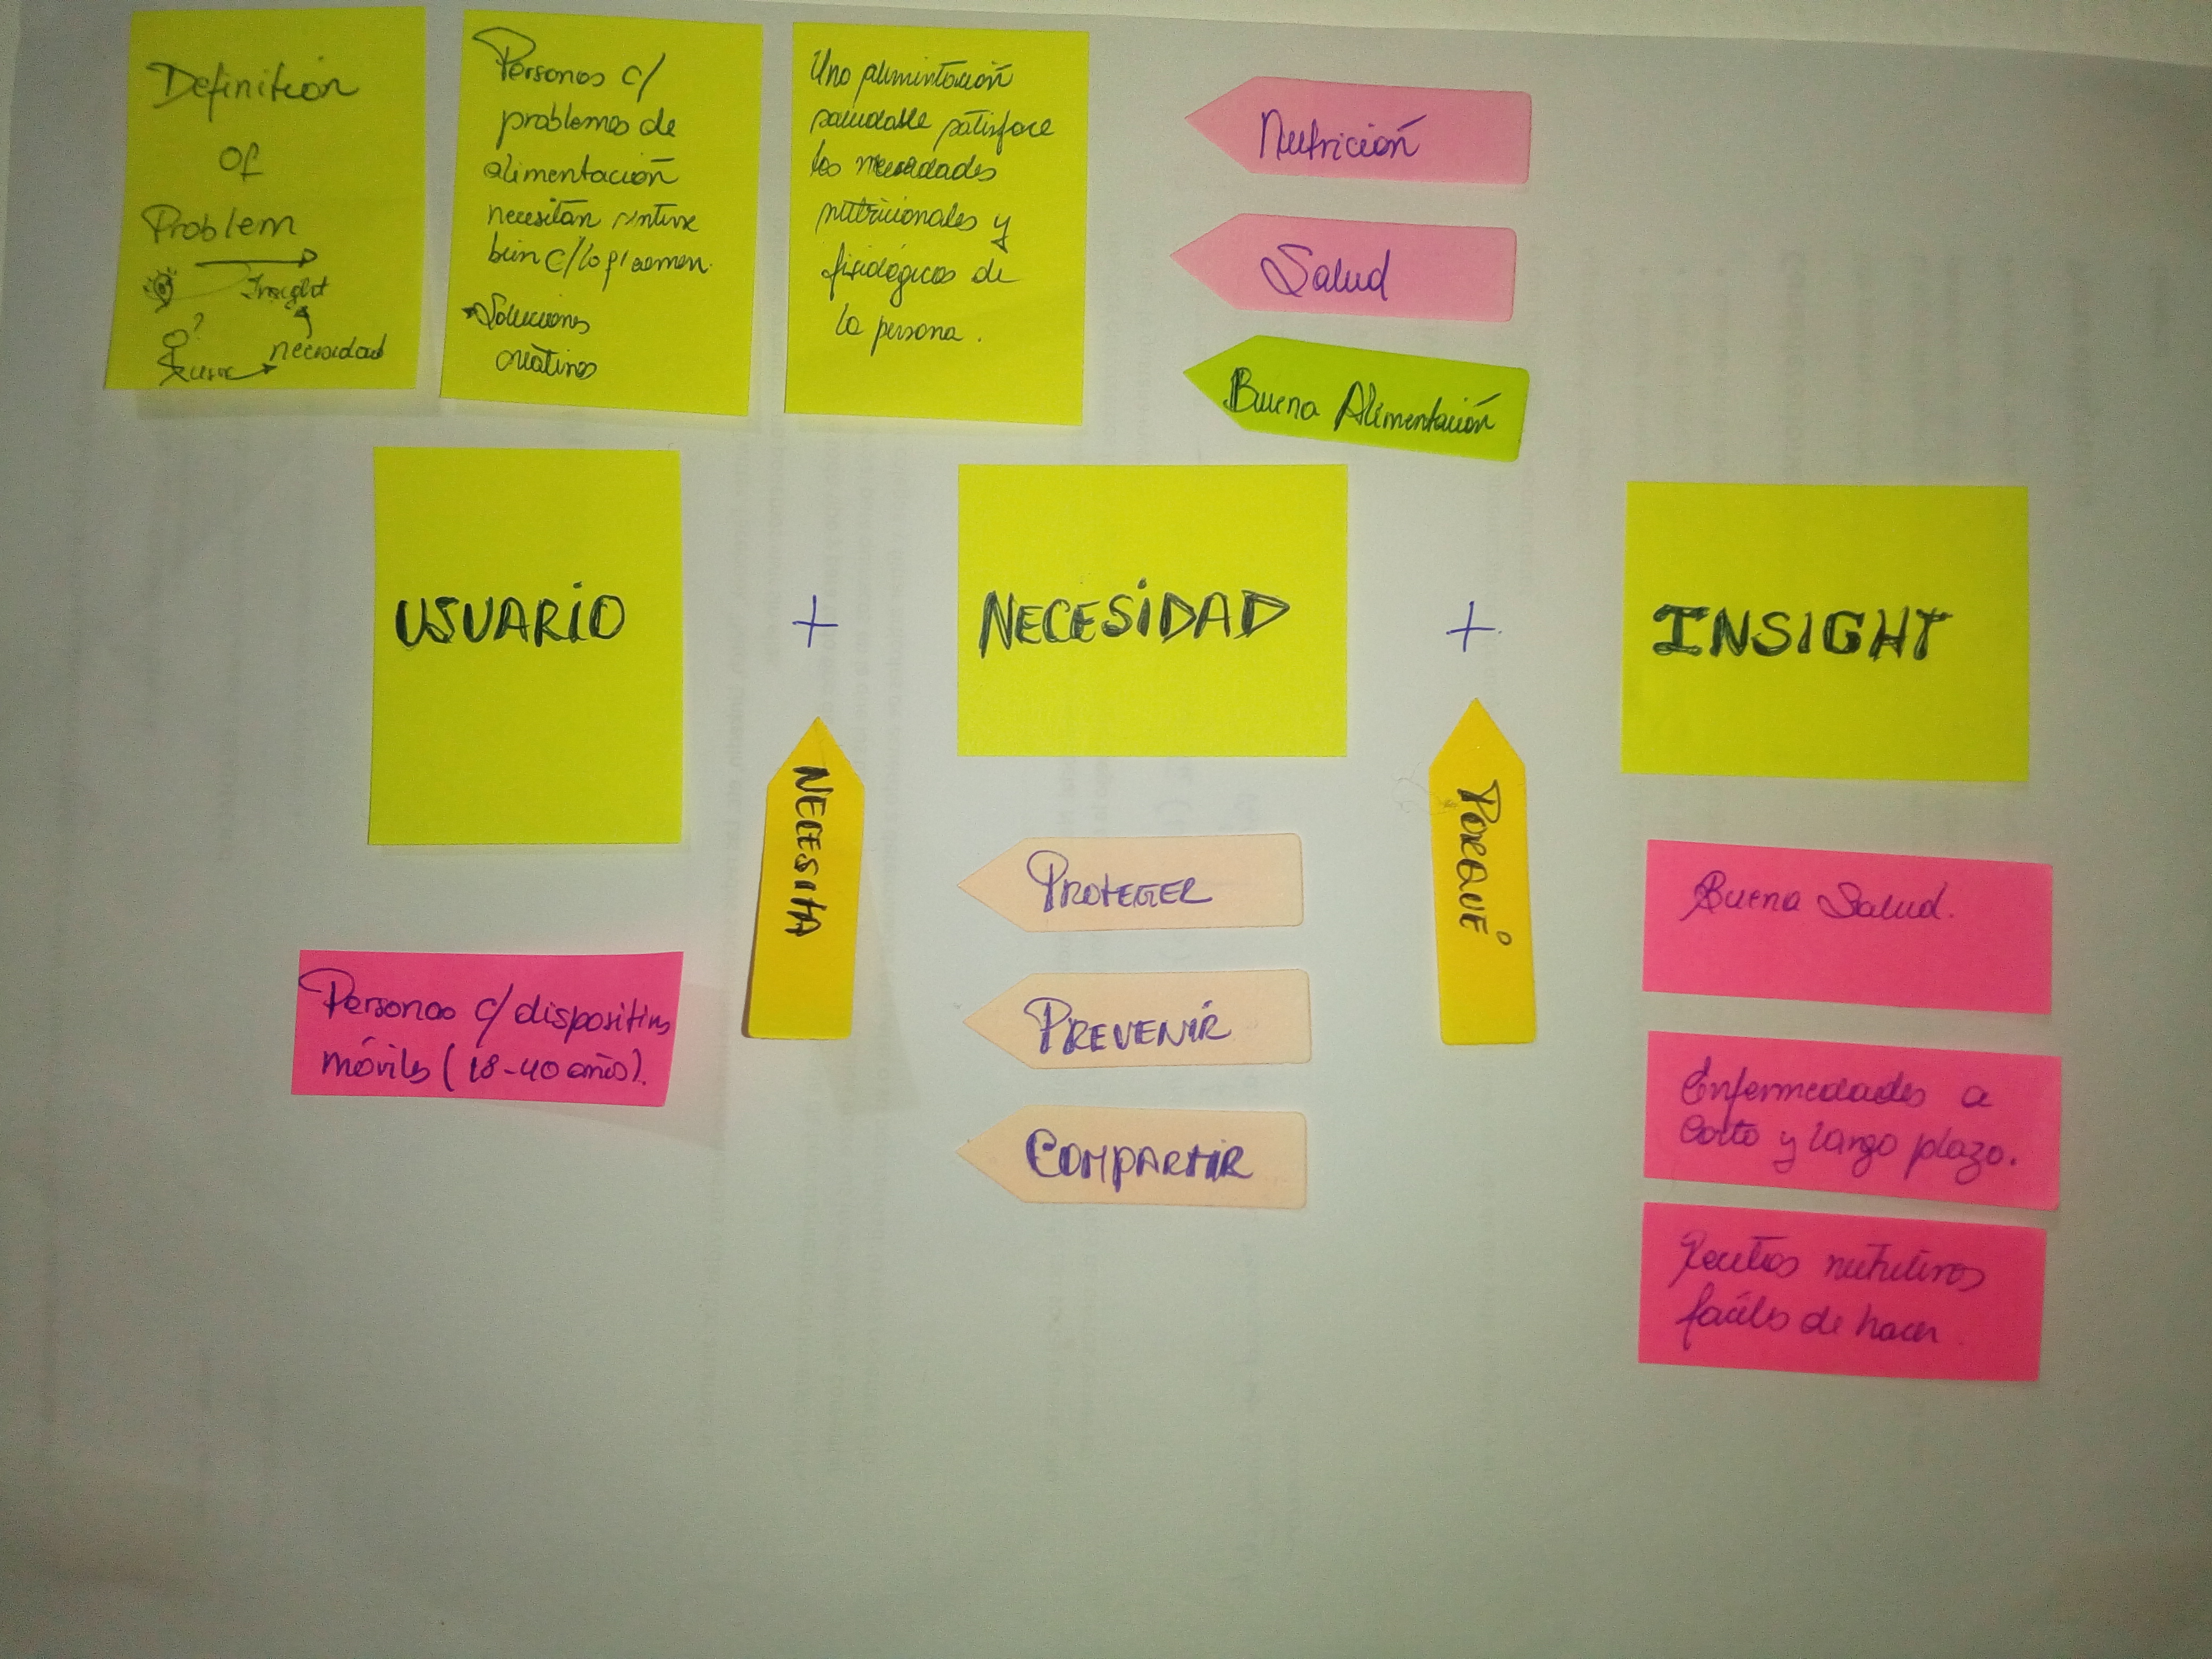 Definition
Of
Problem
Insight
?
necesidad
user
Personas c/
problemas de
alimentación
necesitan sentirse
bien c/lo q'
Soluciones
creativas
Una alimentación
saludable satisface
las necesidades
nutricionales y
fisiológicas de
la persona.
Nutrición
Salud
Buena Alimentación
USUARIO
+
NECESIDAD
+
INSIGHT
NECESITA
PORQUE
Personas c/ dispositivos
móviles (18-40 años).
PROTEGER
PREVENIR
COMPARTIR
Buena Salud.
Enfermedades a
corto y largo plazo.
Recetas nutritivas
fáciles de hacer.